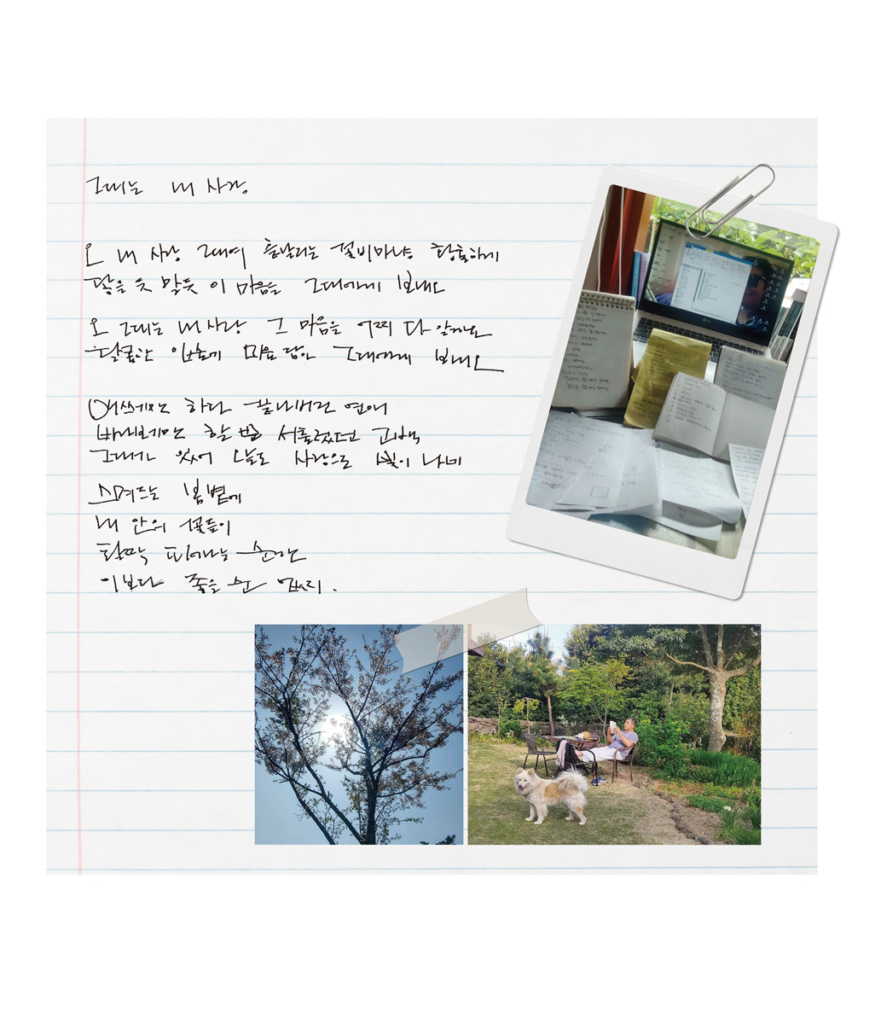 그대는 내 사랑
오 내 사랑 그대여 흩날리는 꽃비마냥 황홀하게
닿을 듯 말듯 이 마음을 그대에게 보내오
오 그대는 내 사랑 그 마음을 어찌 다 알까요
달콤한 인사에 마음 담아 그대에게 보내오
하다 끝나버린 연애
바보처럼 할 말 서툴렀던 고백
그대가 있어 오늘도 사랑으로 빛이 나네
스며드는 봄볕에
내 안의 꽃들이
활짝 피어나는 순간
이보다 좋을 순 없지.